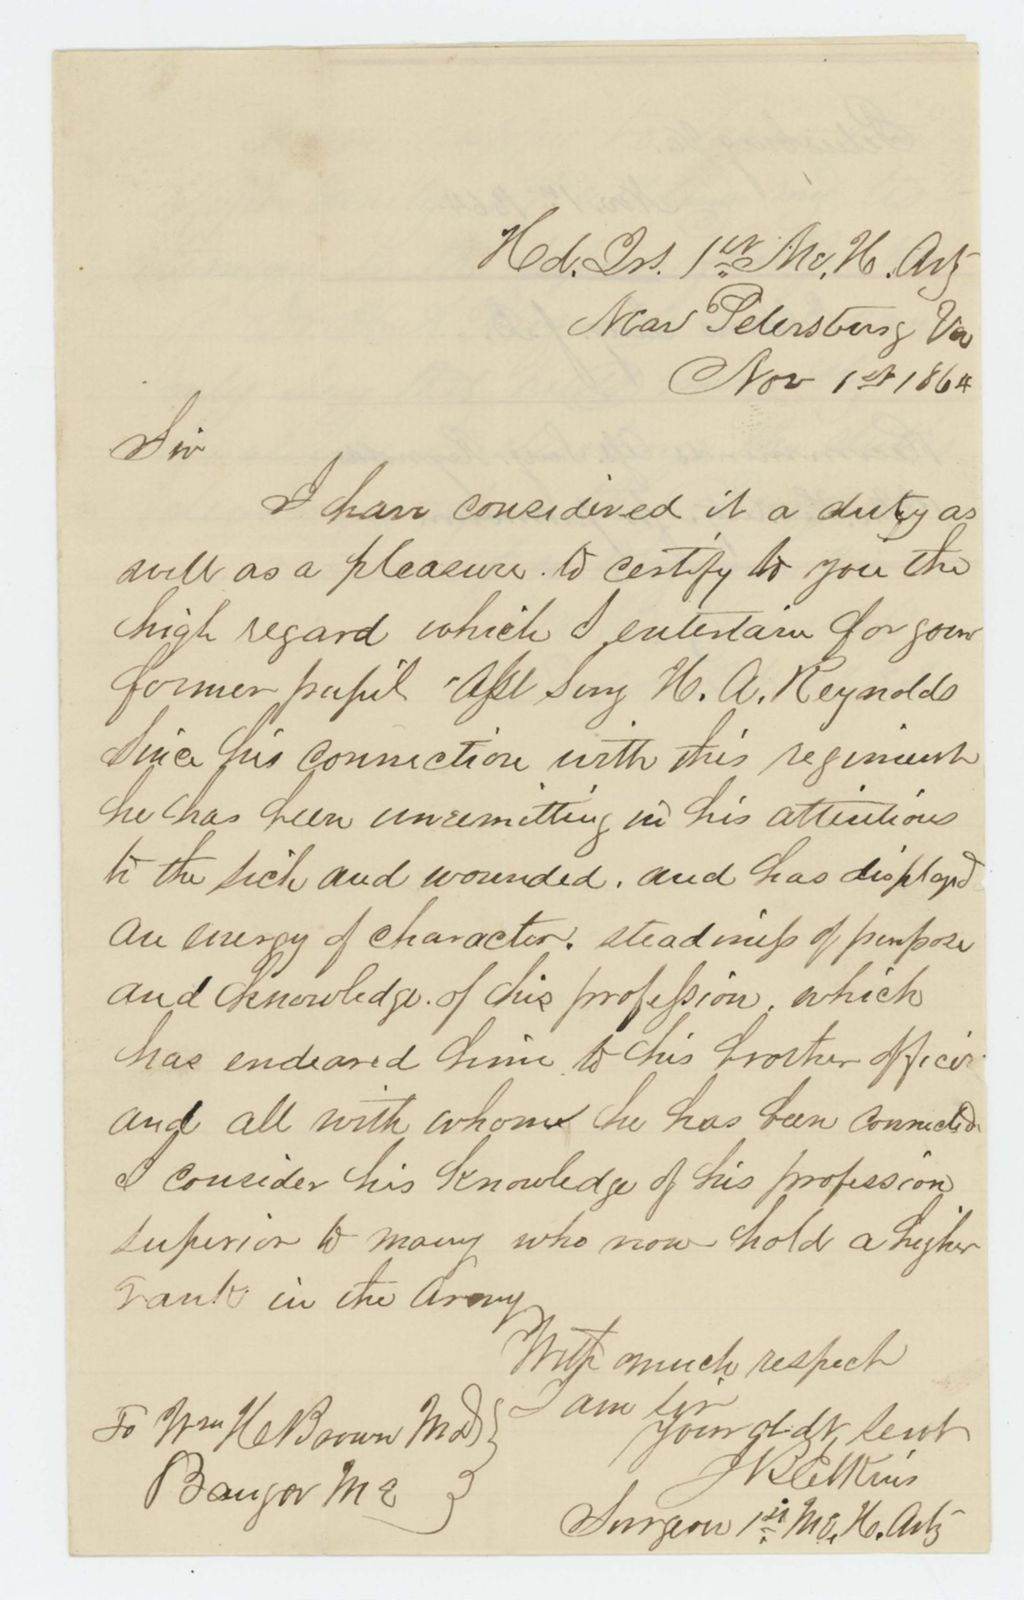 Hd. Qrs. 1st Me. H. Arty
Near Petersburg Va
Nov 1st 1864
Sir
I have considered it a duty as
well as a pleasure to certify to you the
high regard which I entertain for your
former pupil Asst Surg H. A. Reynolds
Since his connection with this regiment
he has been unremitting in his attentions
to the sick and wounded. and has displayed
an energy of character. steadiness of purpose
and knowledge. of his profession, which
has endeared him to his brother officers
and all with whom he has been connected.
I consider his knowledge of his profession
superior to many who now hold a higher
rank in the Army
With much respect
I am Sir
Your obdt, Servt
J. B. Elkins
Surgeon 1st Me. H. Arty
To Wm H Brown MD
Bangor Me